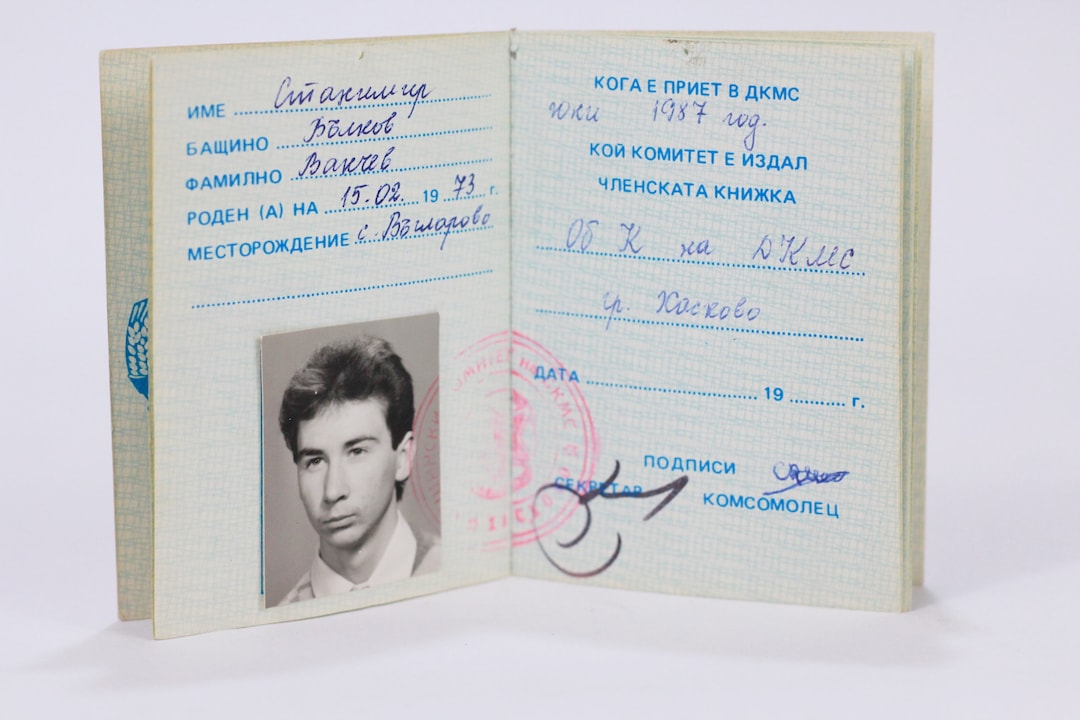 ИМЕ Станимир
БАЩИНО Вълков
ФАМИЛНО Ванчев
РОДЕН (А) НА 15.02. 1973 г.
МЕСТОРОЖДЕНИЕ с. Въгларово
КОГА Е ПРИЕТ В ДКМС
юни 1987 год.
КОЙ КОМИТЕТ Е ИЗДАЛ
ЧЛЕНСКАТА КНИЖКА
Об К на ДКМС
гр. Хасково
ДАТА 19 г.
ПОДПИСИ
СЕКРЕТАР
КОМСОМОЛЕЦ